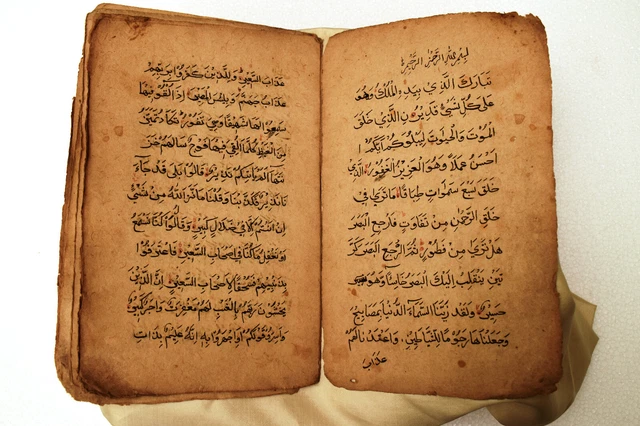 بسم الله الرحمن الرحيم
تبارك الذي بيده الملك وهو
على كل شيء قدير ن الذي خلق
الموت والحيوت ليبلوكم ايكم
احسن عملا وهو العزيز الغفور الذي
خلق سبع سموات طباقا ما ترى في
خلق الرحمن من تفاوت فارجع البصر
هل ترى من فطور ثم ارجع البصر كر
تين ينقلب اليك البصر خاسئا وهو
حسير ولقد زينا السماء الدنيا بمصابيح
وجعلناها رجوما للشياطين واعتدنا لهم
عذاب
عذاب السعير وللذين كفروا بربهم
عذاب جهنم وبئس المصير اذا القوا فيها
سمعوا لها شهيقا وهي تفور تكاد تميز
من الغيظ كلما القي فيها فوج سالهم خز
نتها الم ياتكم نذير قالوا بلى قد جاء
نا نذير فكذبنا وقلنا ما نزل الله من شيء
ان انتم الا في ضلال كبير وقالوا لو كنا نسمع
او نعقل ما كنا في اصحاب السعير فاعترفوا
بذنبهم فسحقا لاصحاب السعير ان الذين
يخشون ربهم بالغيب لهم مغفرة واجر كبير
واسروا قولكم او اجهروا به انه عليم بذات